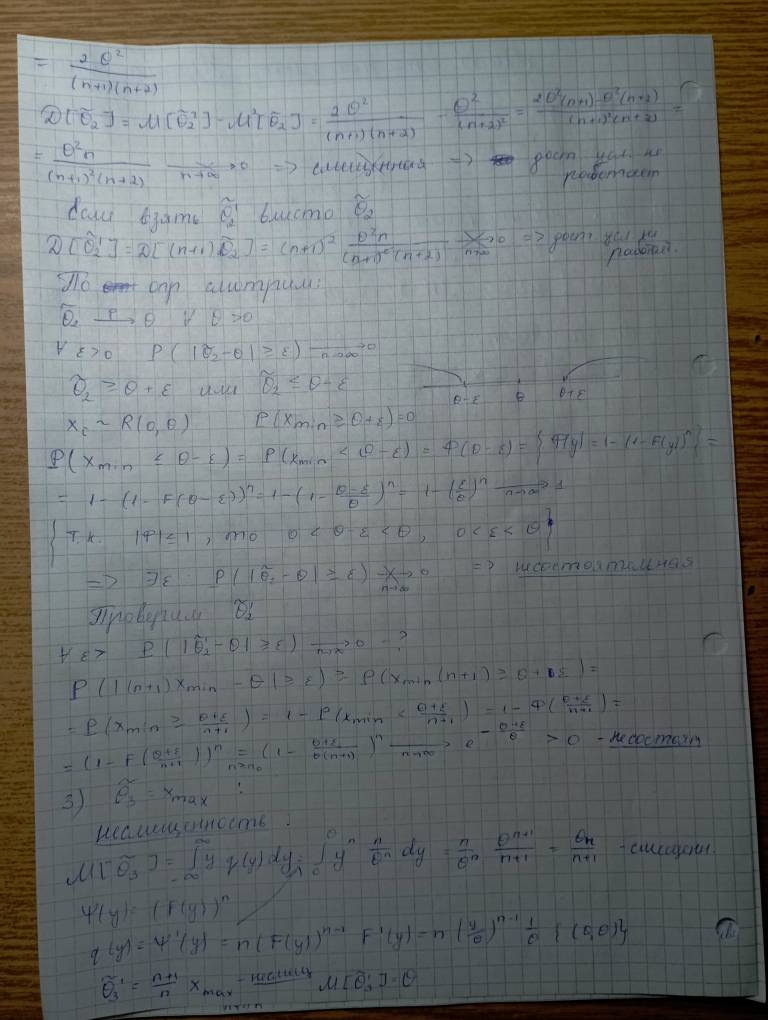 = \frac{2θ²}{(n+1)(n+2)}
D[θ̃₂] = M[θ̃₂²] - M²[θ̃₂] = \frac{2θ²}{(n+1)(n+2)} - \frac{θ²}{(n+2)²} = \frac{2θ²(n+1) - θ²(n+2)}{(n+1)²(n+2)} =
= \frac{θ²n}{(n+1)²(n+2)} \not\xrightarrow[n→∞]{} 0 => смещённая => дост усл. не работает
Если взять θ̃₂' вместо θ̃₂
D[θ̃₂'] = D[(n+1)θ̃₂] = (n+1)² \frac{θ²n}{(n+1)²(n+2)} \not\xrightarrow[n→∞]{} 0 => дост усл не работает.
По опр смотрим:
θ̃₂ \xrightarrow{P} θ ∀ θ>0
∀ ε>0 P(|θ̃₂-θ| ≥ ε) \xrightarrow[n→∞]{} 0
θ̃₂ ≥ θ+ε или θ̃₂ ≤ θ-ε
θ-ε θ θ+ε
x_i ~ R(0,θ) P(x_{min} ≥ θ+ε) = 0
P(x_{min} ≤ θ-ε) = P(x_{min} < θ-ε) = Φ(θ-ε) = {Φ(y) = 1-(1-F(y))ⁿ} =
= 1-(1-F(θ-ε))ⁿ = 1-(1-\frac{θ-ε}{θ})ⁿ = 1-(\frac{ε}{θ})ⁿ \xrightarrow[n→∞]{} 1
{т.к. |Φ| ≤ 1, то 0 < θ-ε < θ, 0 < ε < θ}
=> ∃ε P(|θ̃₂-θ| ≥ ε) \not\xrightarrow[n→∞]{} 0 => несостоятельная
Проверим θ̃₂'
∀ ε> P(|θ̃₂'-θ| ≥ ε) \xrightarrow[n→∞]{} 0 - ?
P(|(n+1)x_{min} - θ| ≥ ε) ≥ P(x_{min}(n+1) ≥ θ+ε) =
= P(x_{min} ≥ \frac{θ+ε}{n+1}) = 1 - P(x_{min} < \frac{θ+ε}{n+1}) = 1 - Φ(\frac{θ+ε}{n+1}) =
= (1-F(\frac{θ+ε}{n+1}))ⁿ \underset{n≥n₀}{=} (1-\frac{θ+ε}{θ(n+1)})ⁿ \xrightarrow[n→∞]{} e^{-\frac{θ+ε}{θ}} > 0 - несостоят
3) θ̃₃ = x_{max} :
несмещенность :
M[θ̃₃] = \int_{-∞}^{∞} y q(y) dy = \int_0^θ yⁿ \frac{n}{θⁿ} dy = \frac{n}{θⁿ} \frac{θ^{n+1}}{n+1} = \frac{θn}{n+1} - смещенн.
Ψ(y) = (F(y))ⁿ
q(y) = Ψ'(y) = n(F(y))^{n-1} F'(y) = n(\frac{y}{θ})^{n-1} \frac{1}{θ} {(0,θ)}
θ̃₃' = \frac{n+1}{n} x_{max} - несмещ M[θ̃₃'] = θ